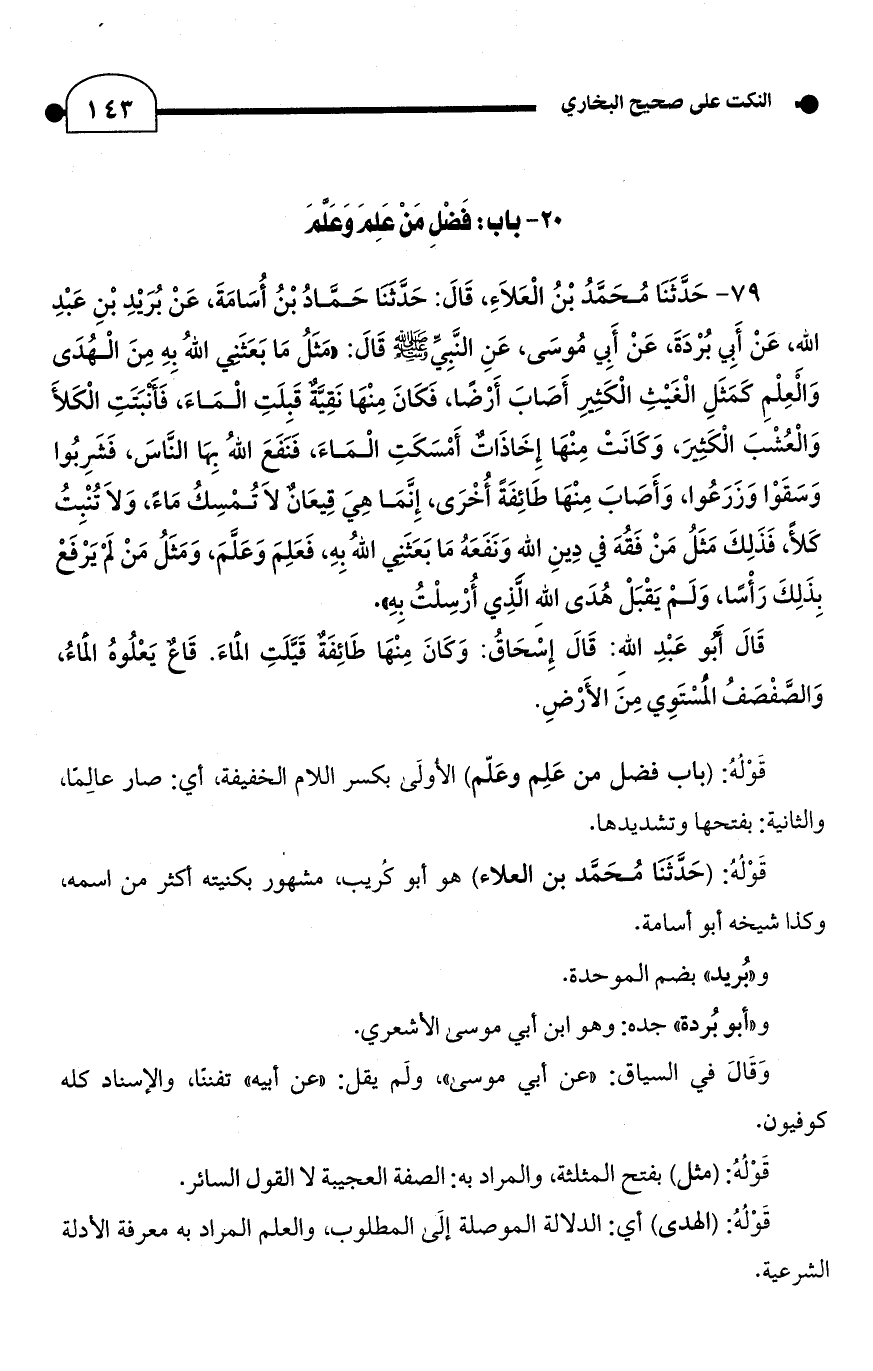 النكت على صحيح البخاري
١٤٣
٢٠- باب: فَضْلِ مَنْ عَلِمَ وَعَلَّمَ
٧٩- حَدَّثَنَا مُحَمَّدُ بْنُ الْعَلاَءِ، قَالَ: حَدَّثَنَا حَمَّادُ بْنُ أُسَامَةَ، عَنْ بُرَيْدِ بْنِ عَبْدِ
الله، عَنْ أَبِي بُرْدَةَ، عَنْ أَبِي مُوسَى، عَنِ النَّبِيِّ ﷺ قَالَ: «مَثَلُ مَا بَعَثَنِي اللهُ بِهِ مِنَ الْهُدَى
وَالْعِلْمِ كَمَثَلِ الْغَيْثِ الْكَثِيرِ أَصَابَ أَرْضًا، فَكَانَ مِنْهَا نَقِيَّةٌ قَبِلَتِ الْمَاءَ، فَأَنْبَتَتِ الْكَلأَ
وَالْعُشْبَ الْكَثِيرَ، وَكَانَتْ مِنْهَا إِخَاذَاتٌ أَمْسَكَتِ الْمَاءَ، فَنَفَعَ اللهُ بِهَا النَّاسَ، فَشَرِبُوا
وَسَقَوْا وَزَرَعُوا، وَأَصَابَ مِنْهَا طَائِفَةً أُخْرَى، إِنَّمَا هِيَ قِيعَانٌ لاَ تُمْسِكُ مَاءً، وَلاَ تُنْبِتُ
كَلأً، فَذَلِكَ مَثَلُ مَنْ فَقُهَ فِي دِينِ الله وَنَفَعَهُ مَا بَعَثَنِي اللهُ بِهِ، فَعَلِمَ وَعَلَّمَ، وَمَثَلُ مَنْ لَمْ يَرْفَعْ
بِذَلِكَ رَأْسًا، وَلَمْ يَقْبَلْ هُدَى اللهِ الَّذِي أُرْسِلْتُ بِهِ».
قَالَ أَبُو عَبْدِ اللهِ: قَالَ إِسْحَاقُ: وَكَانَ مِنْهَا طَائِفَةٌ قَيَّلَتِ الْمَاءَ. قَاعٌ يَعْلُوهُ الْمَاءُ،
وَالصَّفْصَفُ الْمُسْتَوِي مِنَ الأَرْضِ.
قَوْلُهُ: (باب فضل من عَلِم وعَلّم) الأولَى بكسر اللام الخفيفة، أي: صار عالِمًا،
والثانية: بفتحها وتشديدها.
قَوْلُهُ: (حَدَّثَنَا مُحَمَّد بن العلاء) هو أبو كُريب، مشهور بكنيته أكثر من اسمه،
وكذا شيخه أبو أسامة.
و«بُريد» بضم الموحدة.
و«أبو بُردة» جده: وهو ابن أبي موسى الأشعري.
وَقَالَ في السياق: «عن أبي موسى»، ولَم يقل: «عن أبيه» تفننًا، والإسناد كله
كوفيون.
قَوْلُهُ: (مثل) بفتح المثلثة، والمراد به: الصفة العجيبة لا القول السائر.
قَوْلُهُ: (الهدى) أي: الدلالة الموصلة إلَى المطلوب، والعلم المراد به معرفة الأدلة
الشرعية.